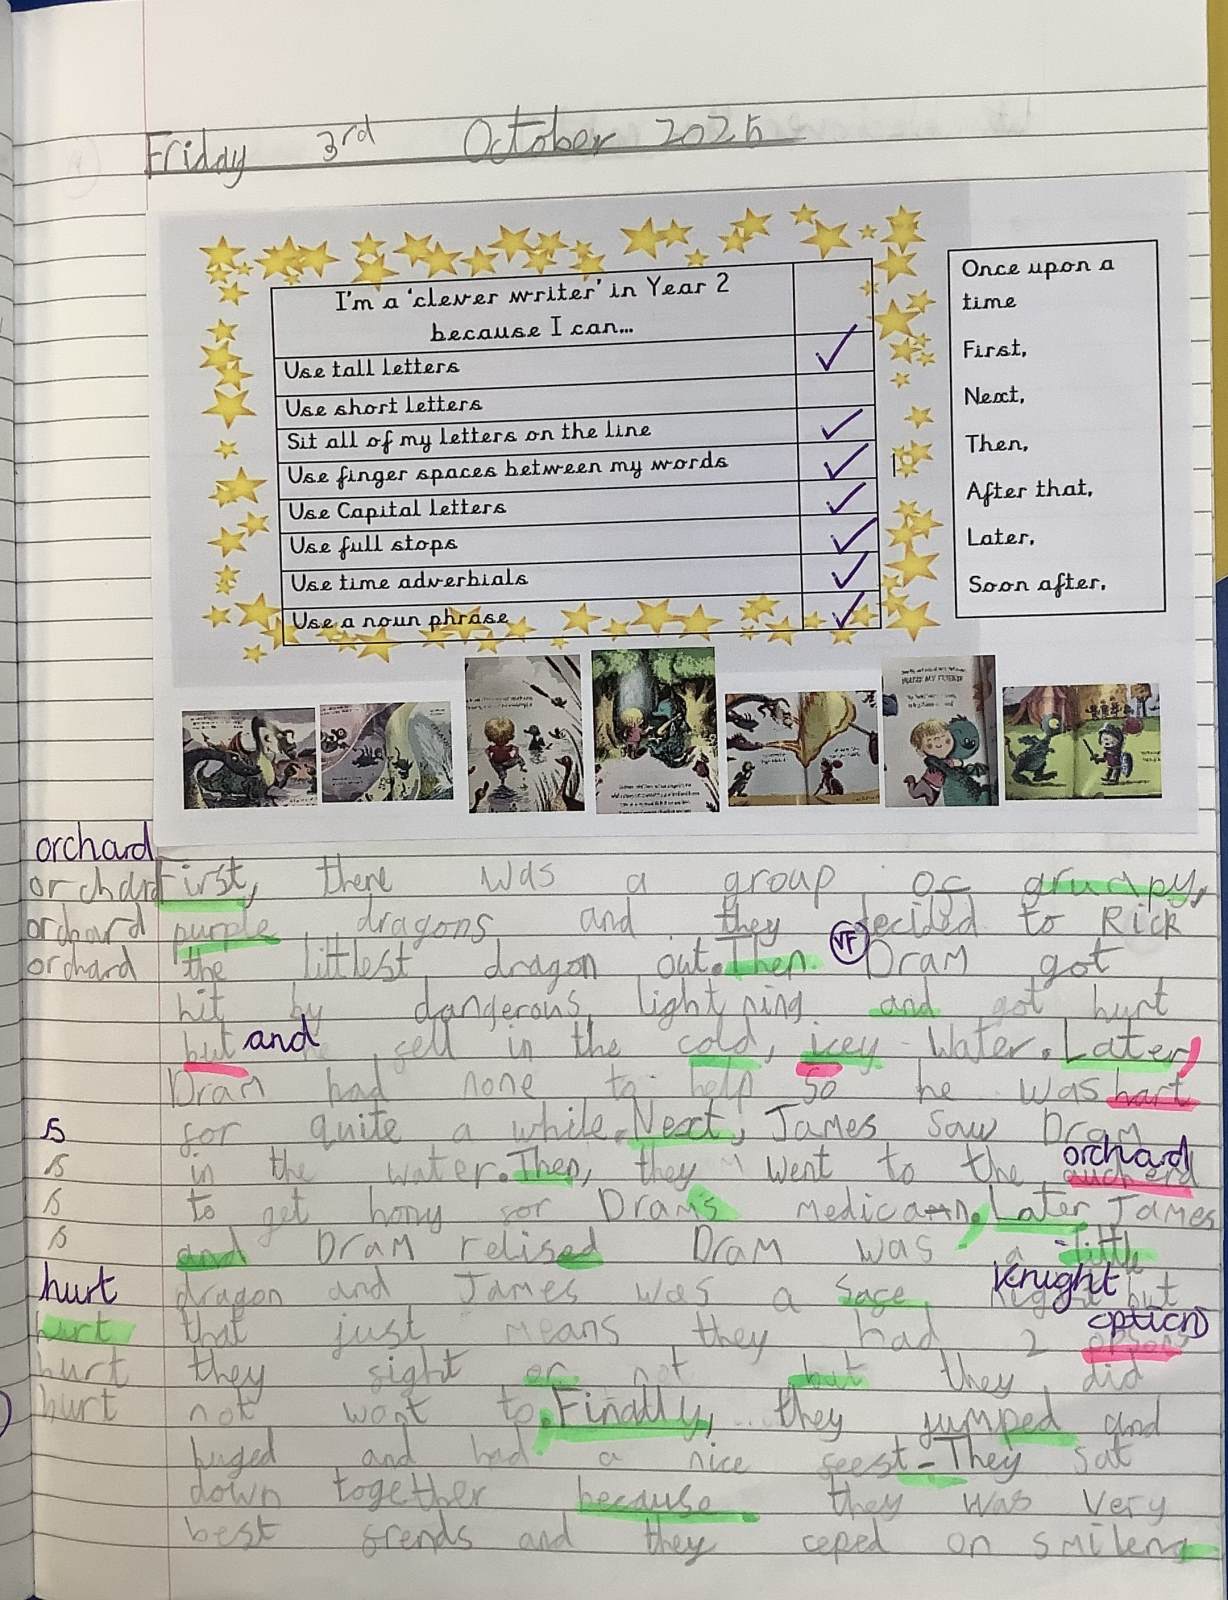 Friday 3rd October 2025
I'm a 'clever writer' in Year 2
because I can...
Use tall letters
Use short letters
Sit all of my letters on the line
Use finger spaces between my words
Use Capital letters
Use full stops
Use time adverbials
Use a noun phrase
Once upon a
time
First,
Next,
Then,
After that,
Later,
Soon after,
orchard
orchard First, there was a group of grumpy,
orchard purple dragons and they decided to kick
orchard the littlest dragon out. Then VF Dram got
hit by dangerous lightning and got hurt
but and he fell in the cold, icey water. Later,
Dram had none to help so he was hart
s for quite a while. Next, James saw Dram
s in the water. Then, they went to the aucherd orchard
s to get hony for Drams medicann. Later James
s and Dram relised Dram was a little
hurt dragon and James was a knight but
hurt that just means they had 2 option
hurt they fight or not but they did
hurt not want to. Finally, they jumped and
huged and had a nice feest. They sat
down together because they was very
best frends and they ceped on smileng